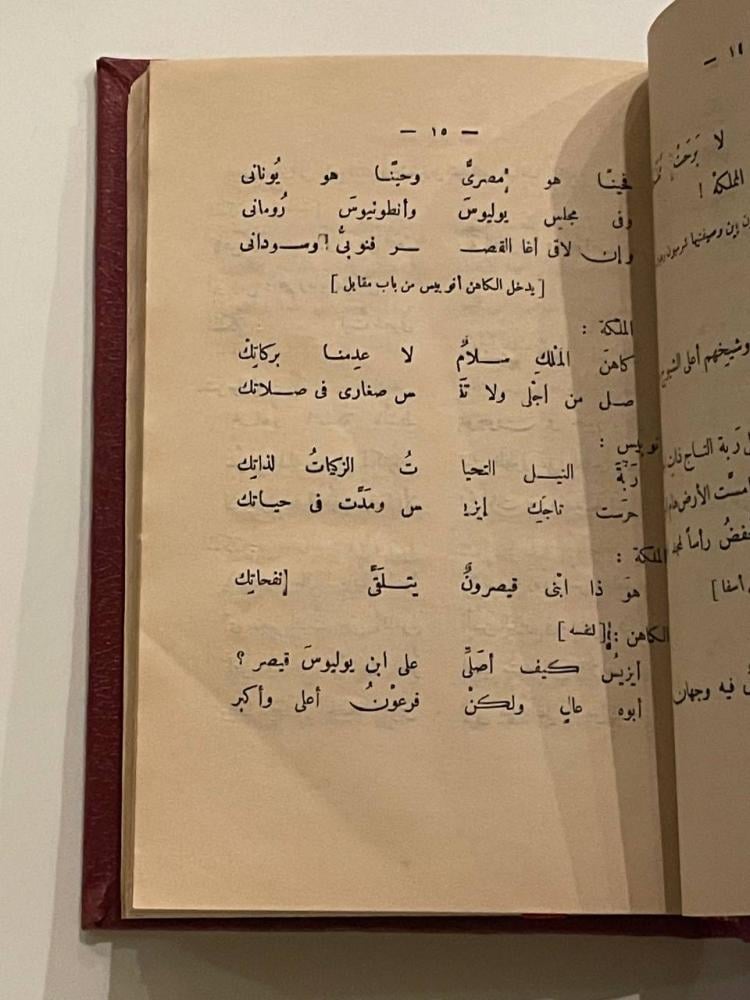 — ١٥ —
فحينًا هو مصرىٌّ وحينًا هو يُونانى
وفى مجلس يوليوسَ وأنطونيوسَ رُومانى
وإن لاقى أغا القصـ ـر فنوبىٌّ وسودانى
[ يدخل الكاهن أنوبيس من باب مقابل ]
الملكة :
كاهنَ المُلكِ سلامٌ لا عدِمنا بركاتِكْ
صل من أجْلى ولا تَنْـ س صغارى فى صلاتك
أنوبيس :
رَبَّةَ النيل التحيا تُ الزكياتُ لذاتِك
حرَست تاجَكِ إيزيـ س ومَدَّت فى حياتك
الملكة :
هوَ ذا ابْنى قيصرونٌ يتلقَّى نفحاتِك
الكاهن : [ لنفسه ]
أيزيسُ كيف أصَلِّى على ابن يوليوسَ قيصر ؟
أبوه عالٍ ولكنْ فرعوْنُ أعلى وأكبر
— ١٤
لا
الملكة !
وشيخهم أعلى
رَبة التاج
أمسَّت الأرض
رأساً
أسفا ]
فيه وجهان